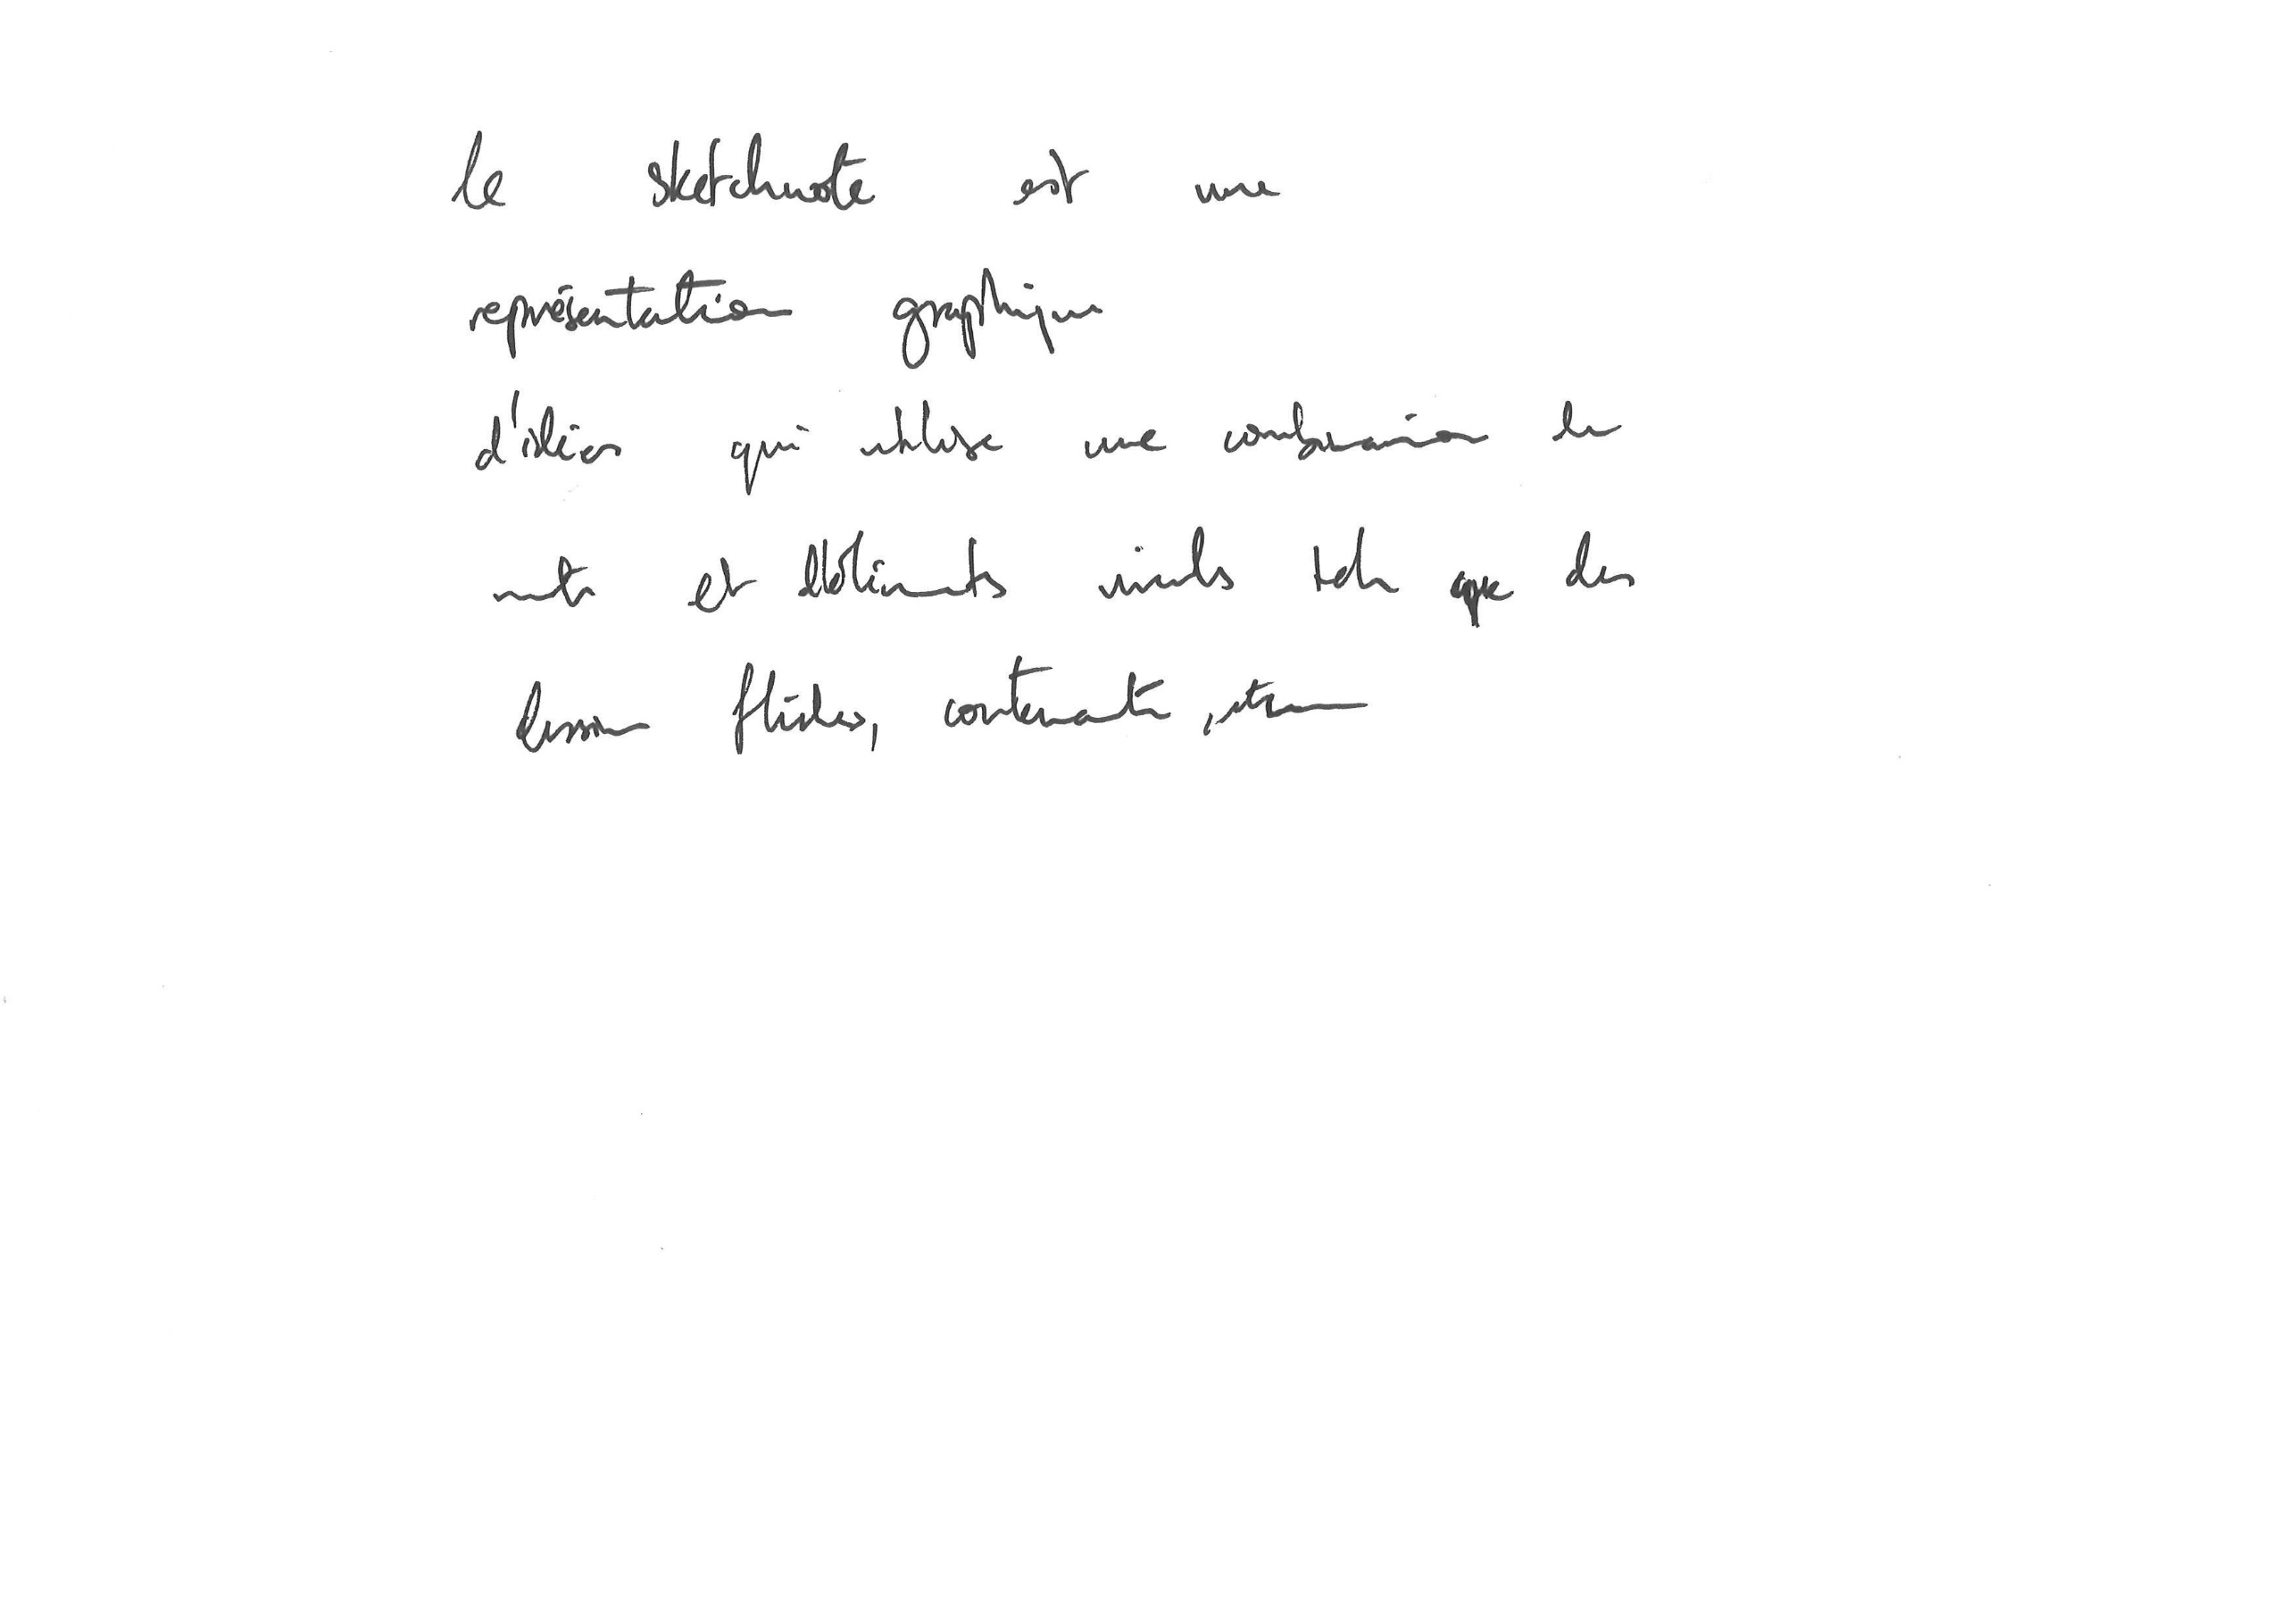 le sketchnote est une
représentation graphique
d'idées qui utilise une combinaison de
mots et d'éléments visuels tels que des
dessins flèches, contenants,